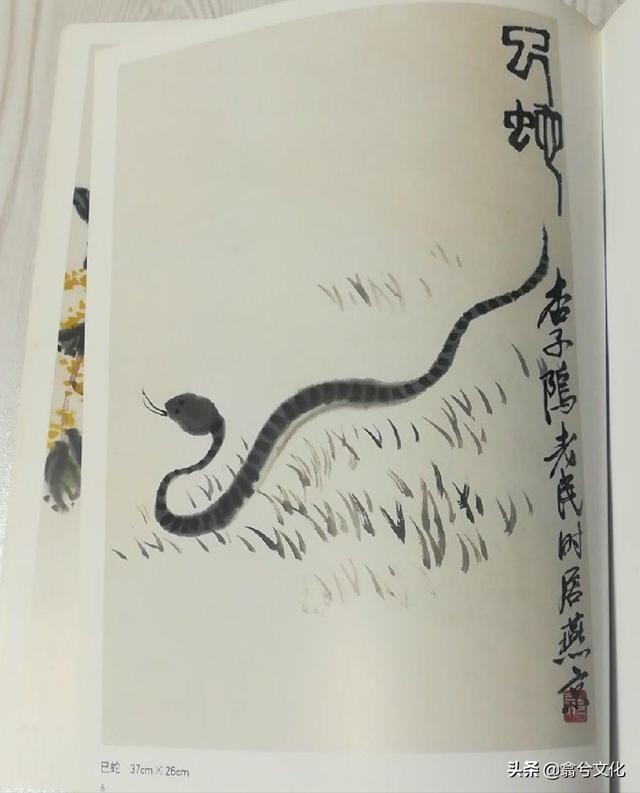 巳虵
杏子隖老民时居燕京
巳蛇 37cm×26cm
6
头条 @翕兮文化